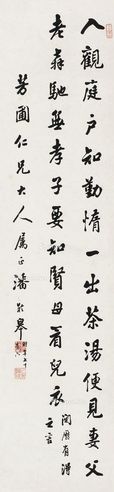 入觀庭戶知勤惰一出茶湯便見妻父
老奔馳無孝子要知賢母看兒衣
閱歷有得
之言
芳圃仁兄大人屬正 潘齡皋